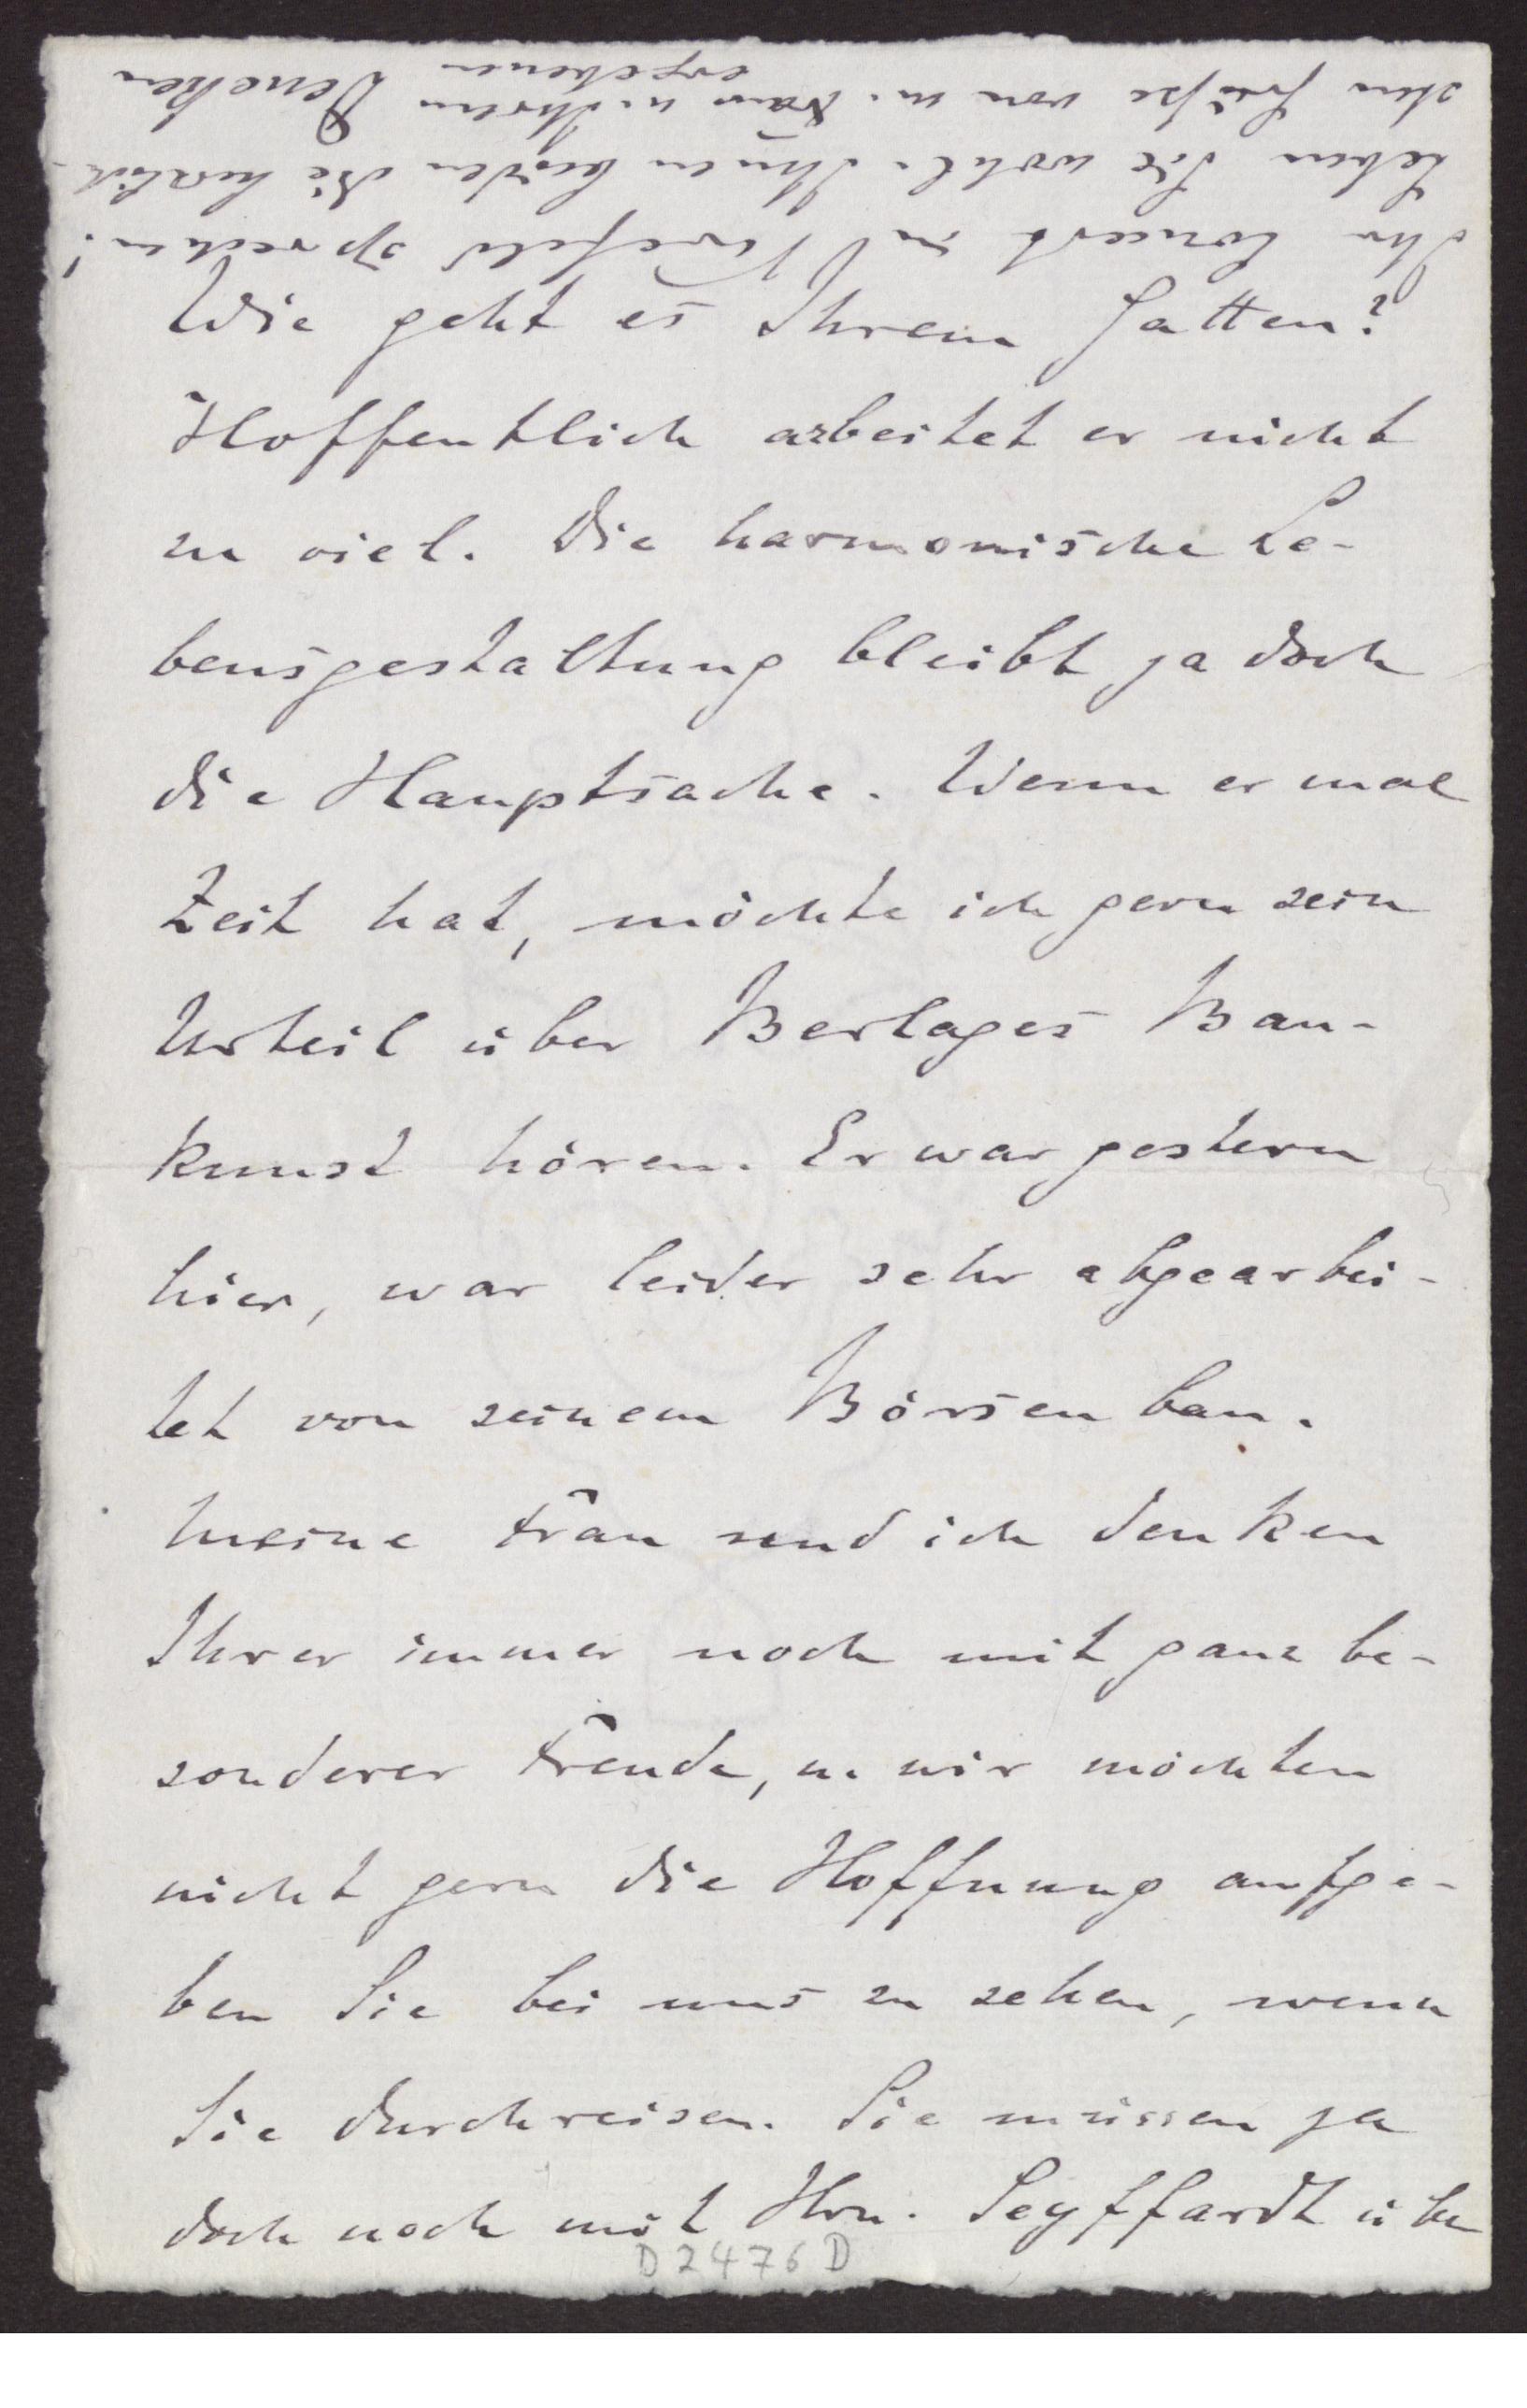 Wie geht es Ihrem Gatten?
Hoffentlich arbeitet er nicht
zu viel. Die harmonische Le-
bensgestaltung bleibt ja doch
die Hauptsache. Wenn er mal
Zeit hat, möchte ich gern sein
Urteil über Berlages Bau-
kunst hören. Er war gestern
hier, war leider sehr abgearbei-
tet von seinem Börsenbau.
Meine Frau und ich denken
Ihrer immer noch mit ganz be-
sonderer Freude, u. wir möchten
nicht gern die Hoffnung aufge-
ben Sie bei uns zu sehen, wenn
Sie durchreisen. Sie müssen ja
doch noch mit Hrn. Seyffardt über
Ihr Concert in Crefeld sprechen!
Leben Sie wohl. Ihnen beiden die herzlich-
sten Grüße von m. Frau u. Ihrem
ergebenen Deneken
D2476D